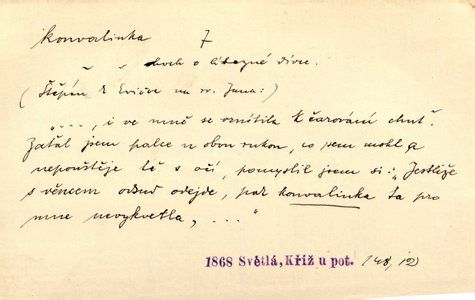 konvalinka 7
duch o líbezné dívce.
(Štěpán k Evičce na sv. Jana:)
"...., i ve mně se vznítila k čarování chuť.
Zaťal jsem palce u obou rukou, co jsem mohl a
nepouštěje tě s očí, pomyslil jsem si: "Jestliže
s věncem odsud odejde, pak konvalinka ta pro
mne nevykvetla, ...."
1868 Světlá, Kříž u pot. 148, 12)